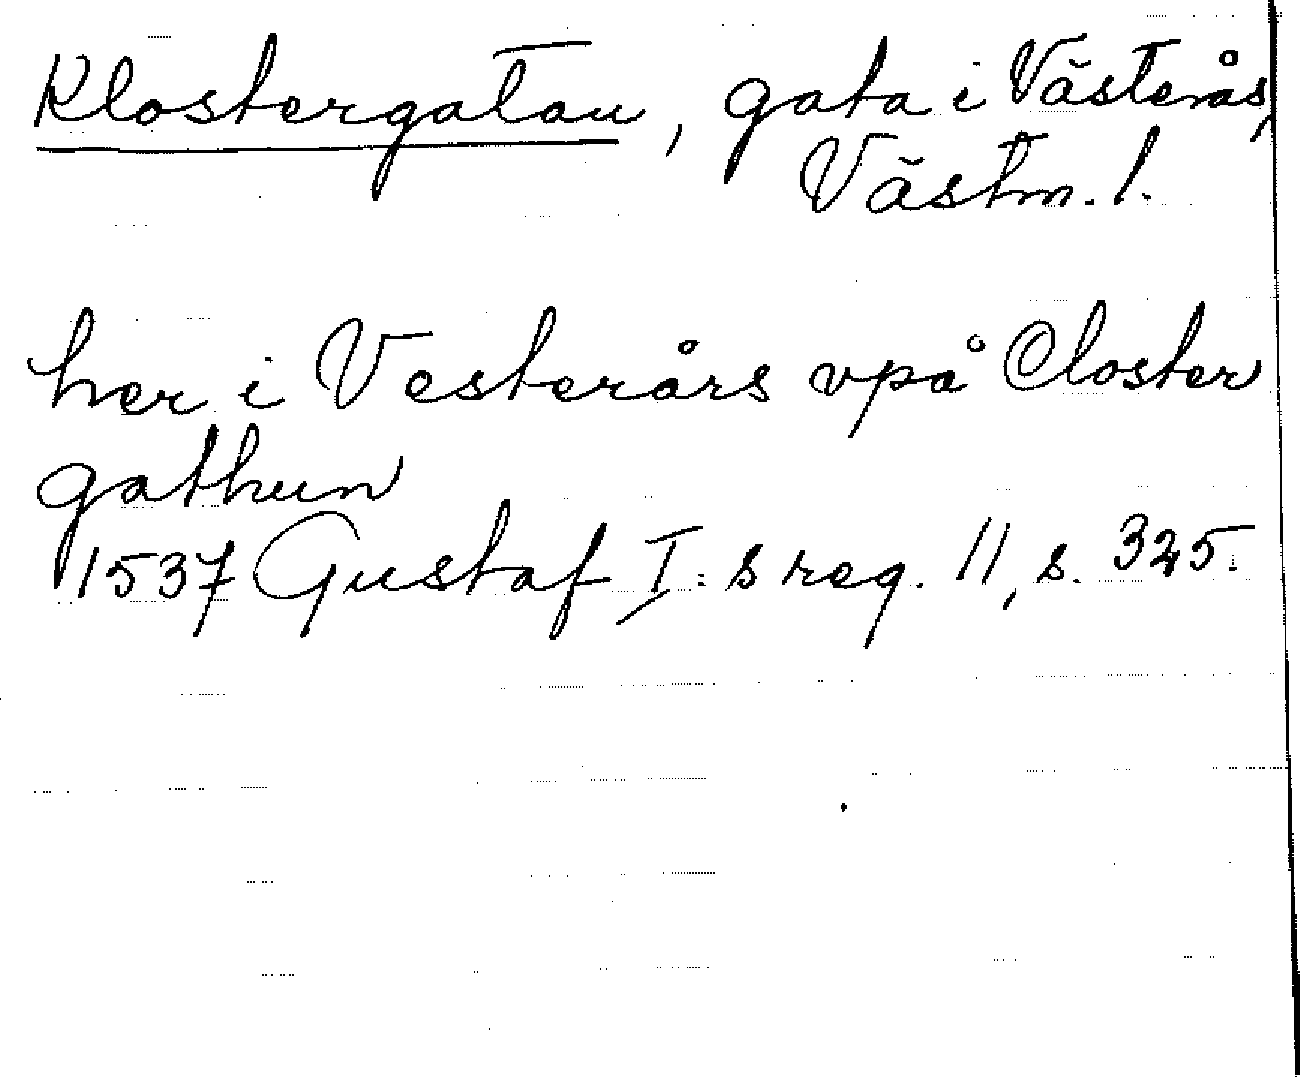 Klostergatan, gata i Västerås,
Västm. l.
her i Vesterårs vpå Closter
gathun
1537 Gustaf I:s reg. 11, s. 325.